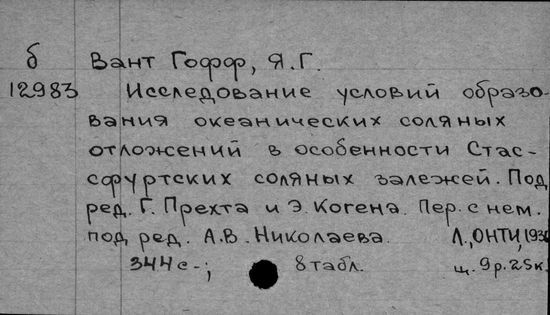 б Вант Гофф, Я.Г.
12983 Исследование условий образо-
вания океанических соляных
отложений в особенности Стас-
сфуртских соляных залежей. Под
ред. Г. Прехта и Э. Когена. Пер. с нем.
под ред. А.В. Николаева. Л., ОНТИ, 1936
344 с.; 8 табл. ц. 9р.25к.